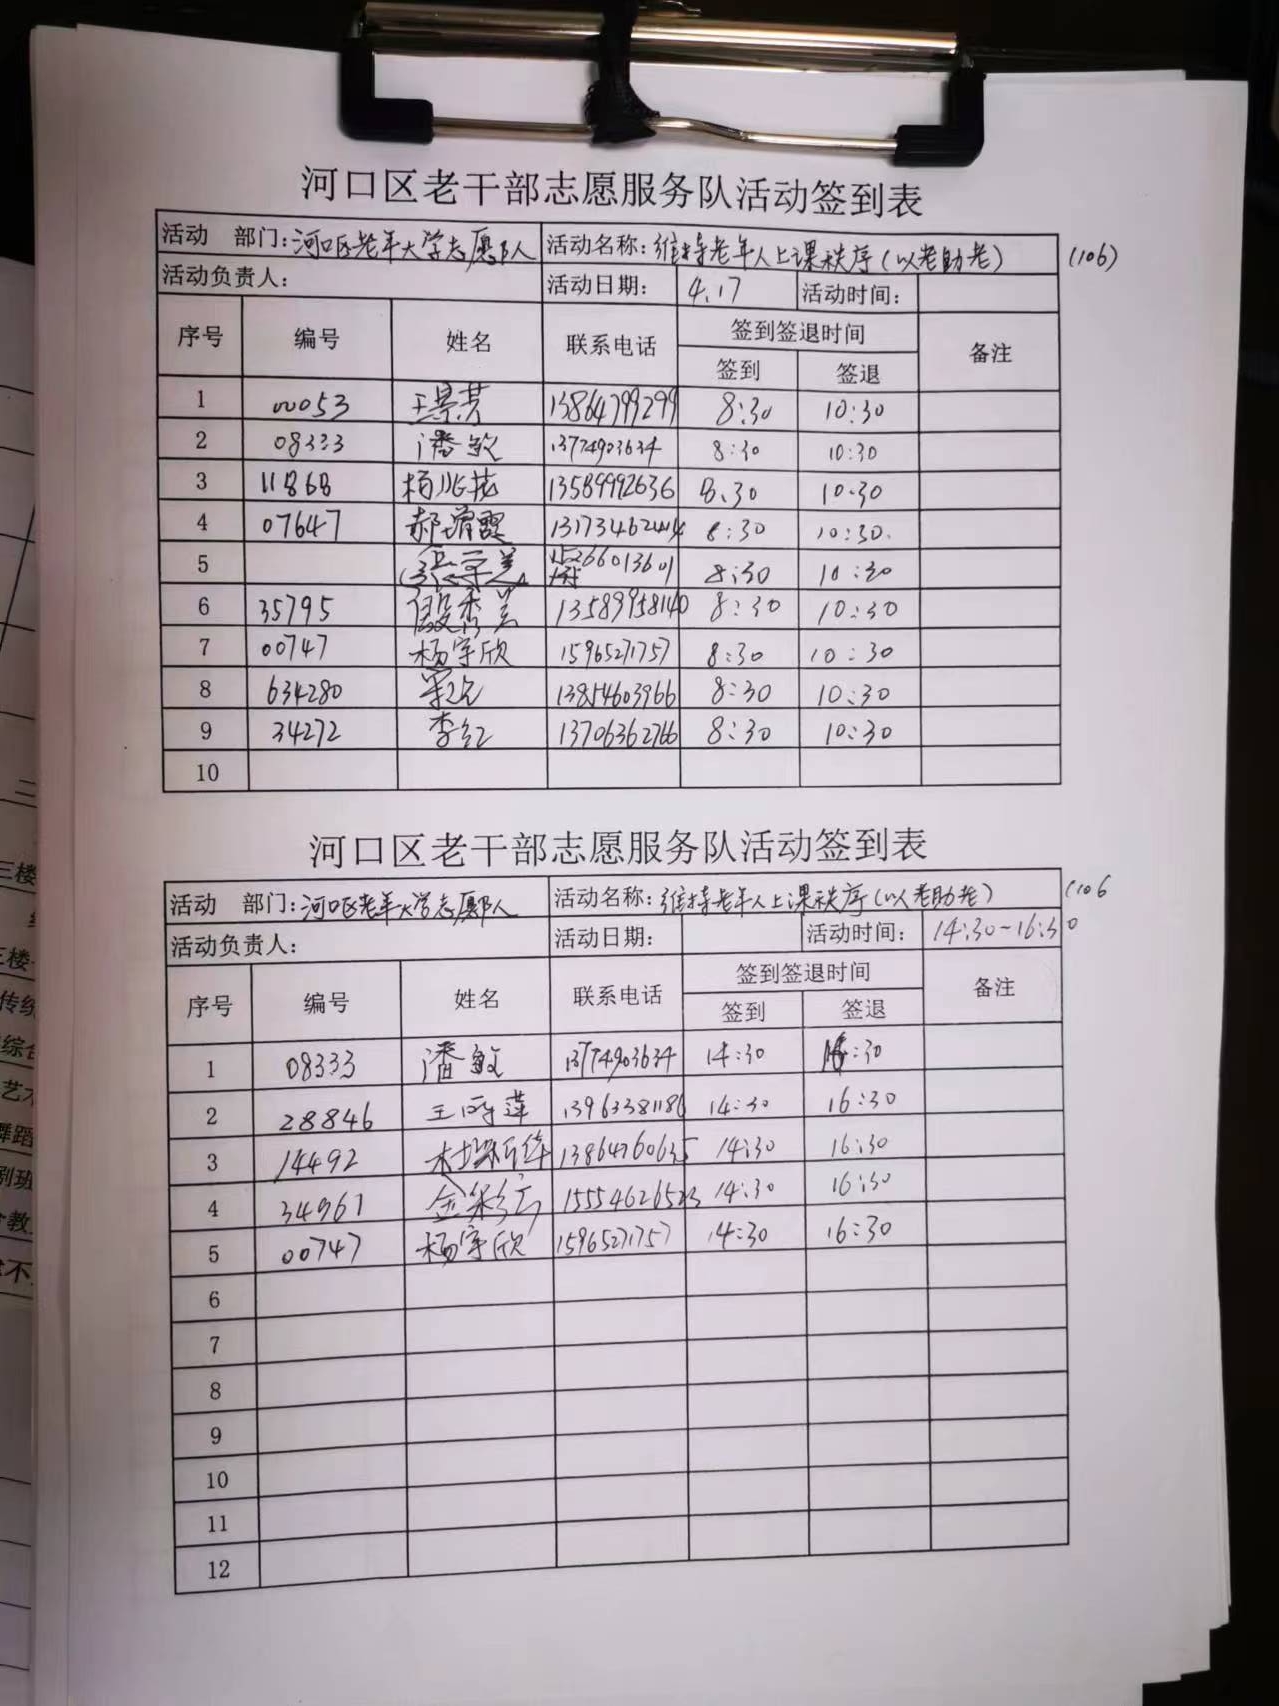 河口区老干部志愿服务队活动签到表
活动 部门：河口区老年大学志愿队人 活动名称：维持老年人上课秩序（以老助老） （106）
活动负责人： 活动日期： 4.17 活动时间：
序号 编号 姓名 联系电话 签到签退时间 备注
签到 签退
1 00053 王景芳 13864799299 8:30 10:30
2 08333 潘敏 13774903634 8:30 10:30
3 11868 杨兆花 13589992636 8:30 10:30
4 07647 郝增霞 13173462414 8:30 10:30
5 8:30 10:30
6 35795 殷秀兰 13589958140 8:30 10:30
7 00747 杨宇欣 15965271757 8:30 10:30
8 634280 13854603966 8:30 10:30
9 34272 李红 13706362766 8:30 10:30
10
河口区老干部志愿服务队活动签到表
活动 部门：河口区老年大学志愿队人 活动名称：维持老年人上课秩序（以老助老） （106
活动负责人： 活动日期： 活动时间： 14:30~16:30
序号 编号 姓名 联系电话 签到签退时间 备注
签到 签退
1 08333 潘敏 13774903634 14:30 16:30
2 28846 王 莲 13963381186 14:30 16:30
3 14492 13864760635 14:30 16:30
4 34961 金彩云 14:30 16:30
5 00747 杨宇欣 15965271757 14:30 16:30
6
7
8
9
10
11
12